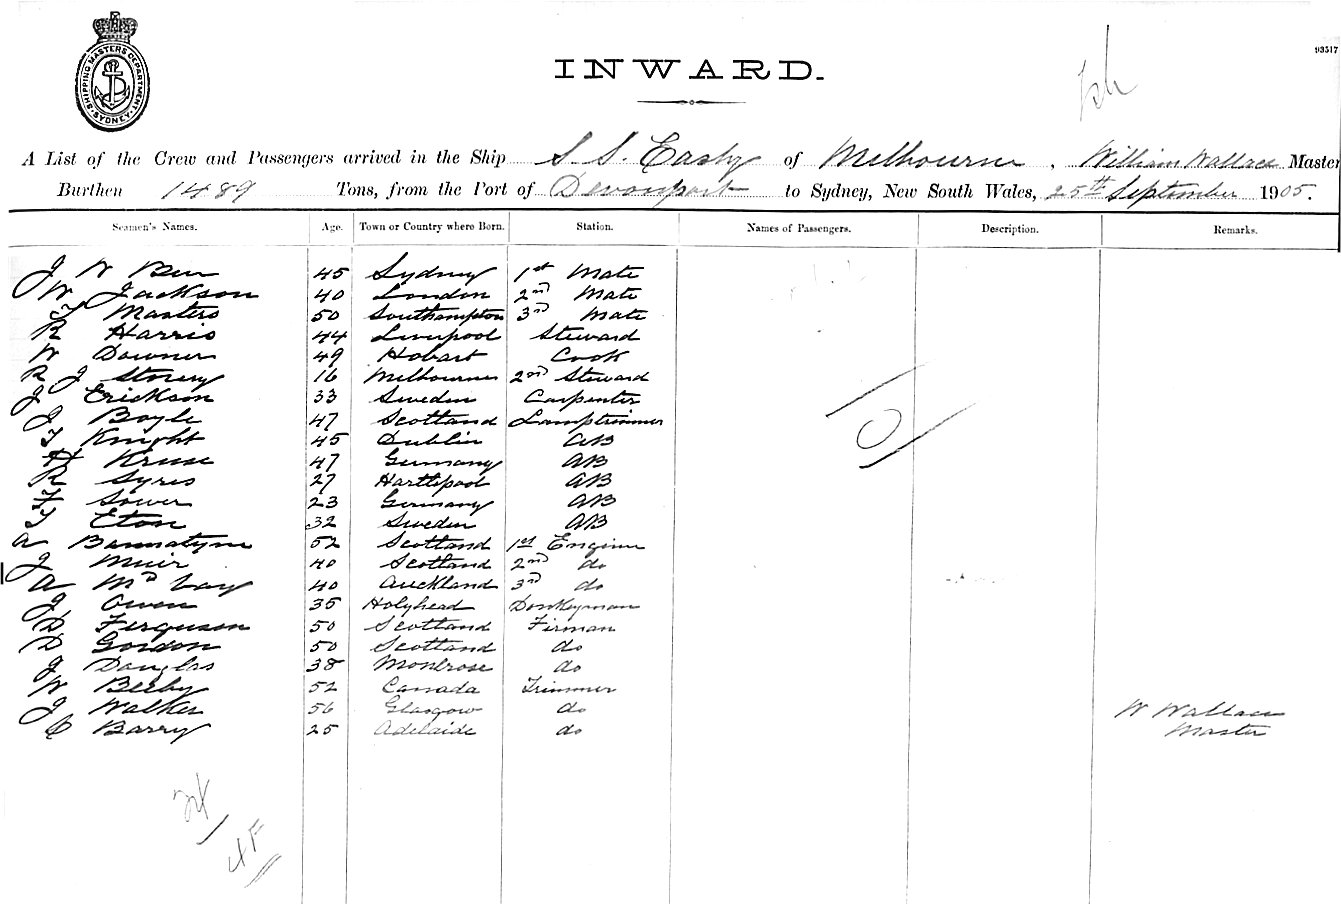 SHIPPING MASTERS DEPARTMENT
SYDNEY
INWARD.
93517
A List of the Crew and Passengers arrived in the Ship S. S. Easby of Melbourne, William Wallace Master
Burthen 1489 Tons, from the Port of Devonport to Sydney, New South Wales, 25th September 1905.
Seamen's Names. Age. Town or Country where Born. Station. Names of Passengers. Description. Remarks.
J W 45 Sydney 1st Mate
W Jackson 40 London 2nd Mate
Masters 50 Southampton 3rd Mate
R Harris 44 Liverpool Steward
W Downer 49 Hobart Cook
R J Storey 16 Melbourne 2nd Steward
J Erickson 33 Sweden Carpenter
J Boyle 47 Scotland Lamptrimmer
T Knight 45 Dublin AB
A Kruse 47 Germany AB
R Syres 27 Hartlepool AB
Sower 23 Germany AB
T Eton 32 Sweden AB
A Bannatyne 52 Scotland 1st Engineer
J Muir 40 Scotland 2nd do
A 40 Auckland 3rd do
J Owen 35 Holyhead Donkeyman
D Ferguson 50 Scotland Firman
D Gordon 50 Scotland do
J Douglas 38 Montrose do
W Beeby 52 Canada Trimmer
J Walker 56 Glasgow do
C Barry 25 Adelaide do
W Wallace
Master
24
4F